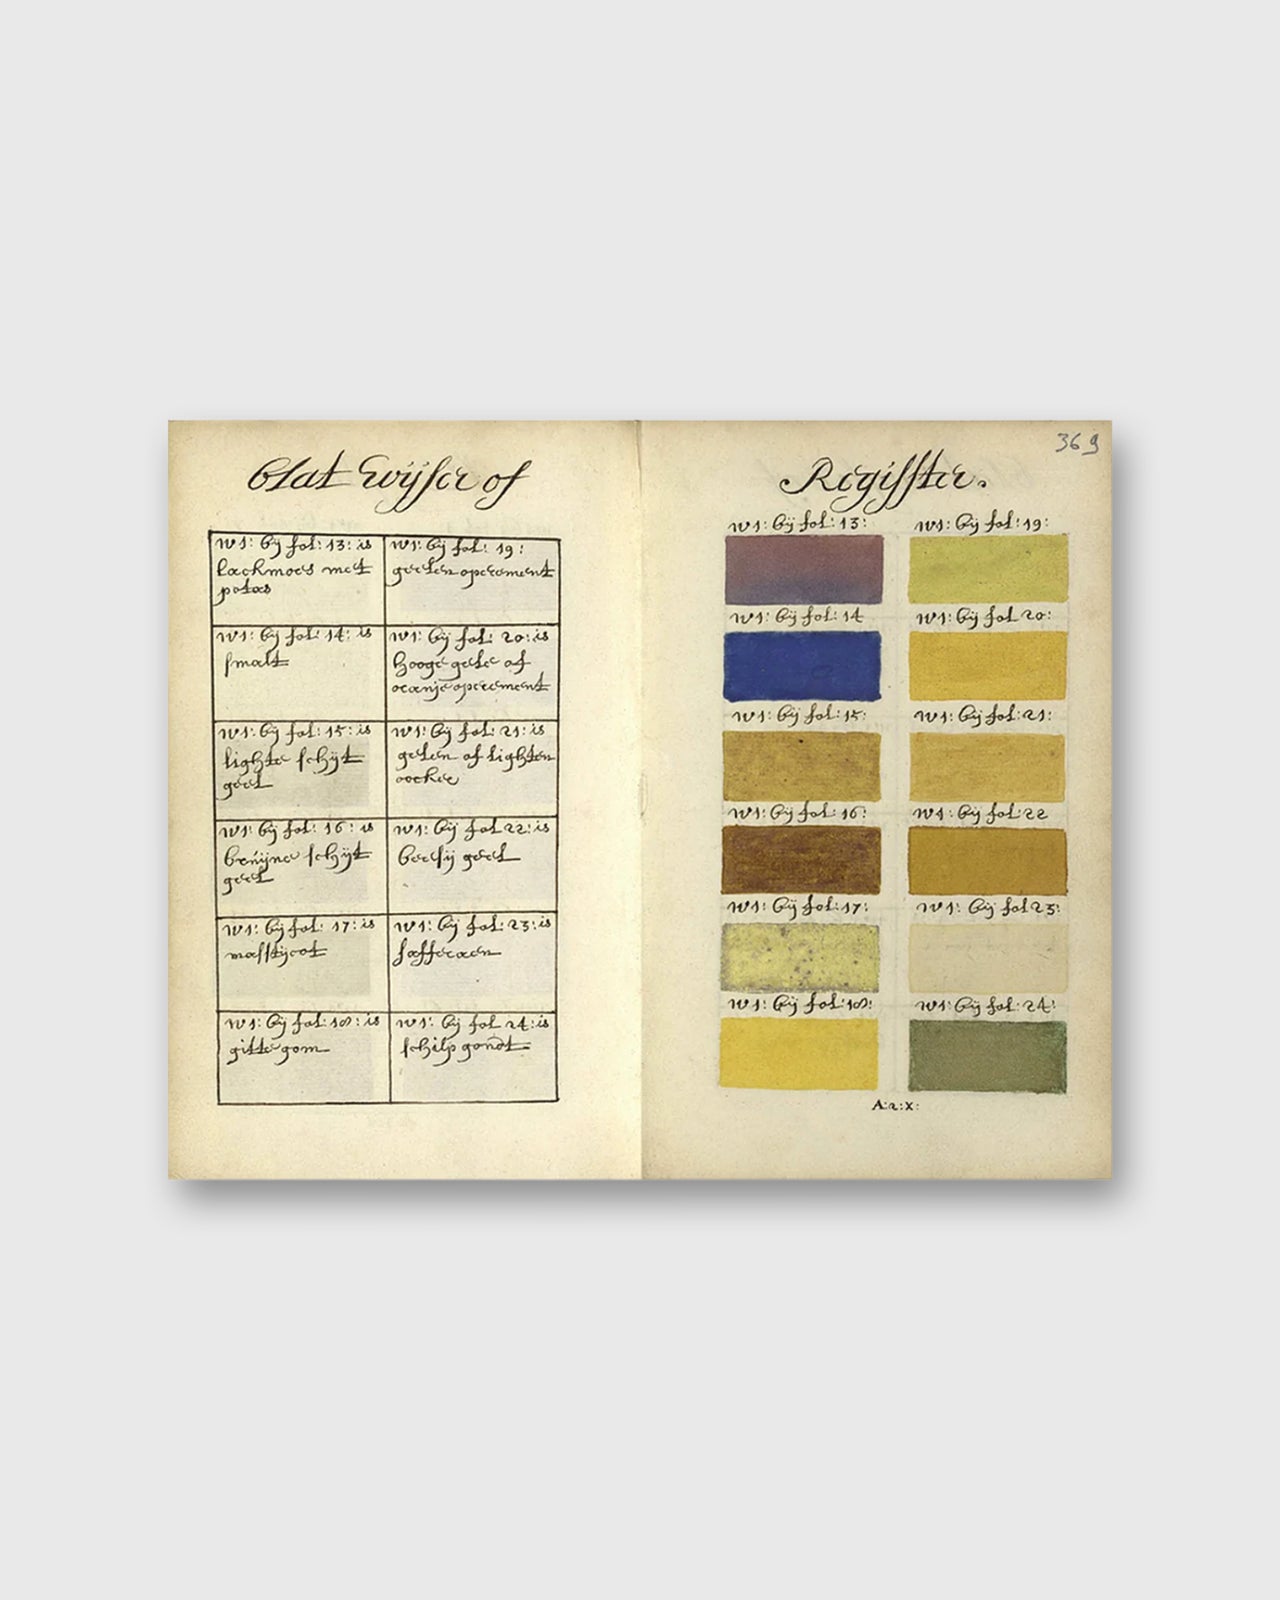 Blat wijser of
N1: bij fol: 13: is
lackmoes met
potas
N1: bij fol: 14: is
smalt
N1: bij fol: 15: is
lighte schijt
geel
N1: bij fol: 16: is
bruijne schijt
geel
N1: bij fol: 17: is
masstijcot
N1: bij fol: 18: is
gitte gom
N1: bij fol: 19:
geelen operement
N1: bij fol: 20: is
hooge gele of
oranje operement
N1: bij fol: 21: is
gelen of lighten
oocker
N1: bij fol: 22: is
geel
N1: bij fol: 23: is
safferaen
N1: bij fol 24: is
schilp
369
Regisster.
N1: bij fol: 13:
N1: bij fol: 14
N1: bij fol: 15:
N1: bij fol: 16:
N1: bij fol: 17:
N1: bij fol: 18:
N1: bij fol: 19:
N1: bij fol 20:
N1: bij fol: 21:
N1: bij fol: 22
N1: bij fol 23:
N1: bij fol: 24:
A:2:X: